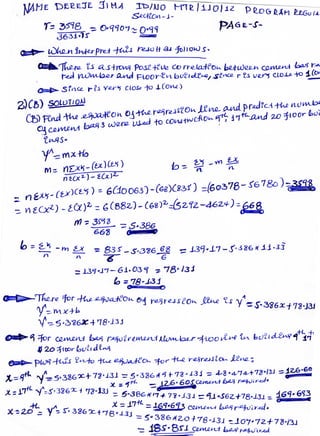 NAME DEREJE JIMA ID/NO MTR/110/12 PROGRAM REGULE
Section-1-
r = 3598 / 3631.75 = 0.9907 ≈ 0.99 PAGE-5-
When Interpret this result as follows.
There is a strong Positive correlation between cement bags re
red number and floor in building, since r is very close to 1 (one)
Since r is very close to 1 (one)
2)(B) SOLUTION
(B) Find the equation of the regression line and predict the numbe
of cement bags were used to construction 9th, 17th and 20 floor buil
ings.
y^ = mx+b
m = nΣxy-(Σx)(Σy) / nΣ(x²)-Σ(x)² b = Σy/n - m Σx/n
= nΣxy-(Σx)(Σy) = 6(10063)-(68)(835) = (60378-56780) = 3598
= nΣ(x²)-Σ(x)² = 6(882)-(68)² = (5292-4624) = 668
m = 3598 / 668 = 5.386
b = Σy/n - m Σx/n = 835/6 - 5.386 68/6 = 139.17-5.386 x 11.33
= 139.17-61.039 = 78.131
b = 78.131
There for the equation of regression line is y^ = 5.386x+78.131
y^ = mx+b
y^ = 5.386x+78.131
9 For cement bags requirement Number floor in building 9th, 17th
& 20 floor building
Put this into the equation for the regression line;
x = 9th y^ = 5.386x+78.131 = 5.386x9+78.131 = 48.474+78.131 = 126.60
x = 9th = 126.605 cement bags required.
x = 17th y^ = 5.386x+78.131 = 5.386x17+78.131 = 91.562+78.131 = 169.693
x = 17th = 169.693 cement bags required.
x = 20th y^ = 5.386x+78.131 = 5.386x20+78.131 = 107.72+78.131
= 185.851 cement bags required